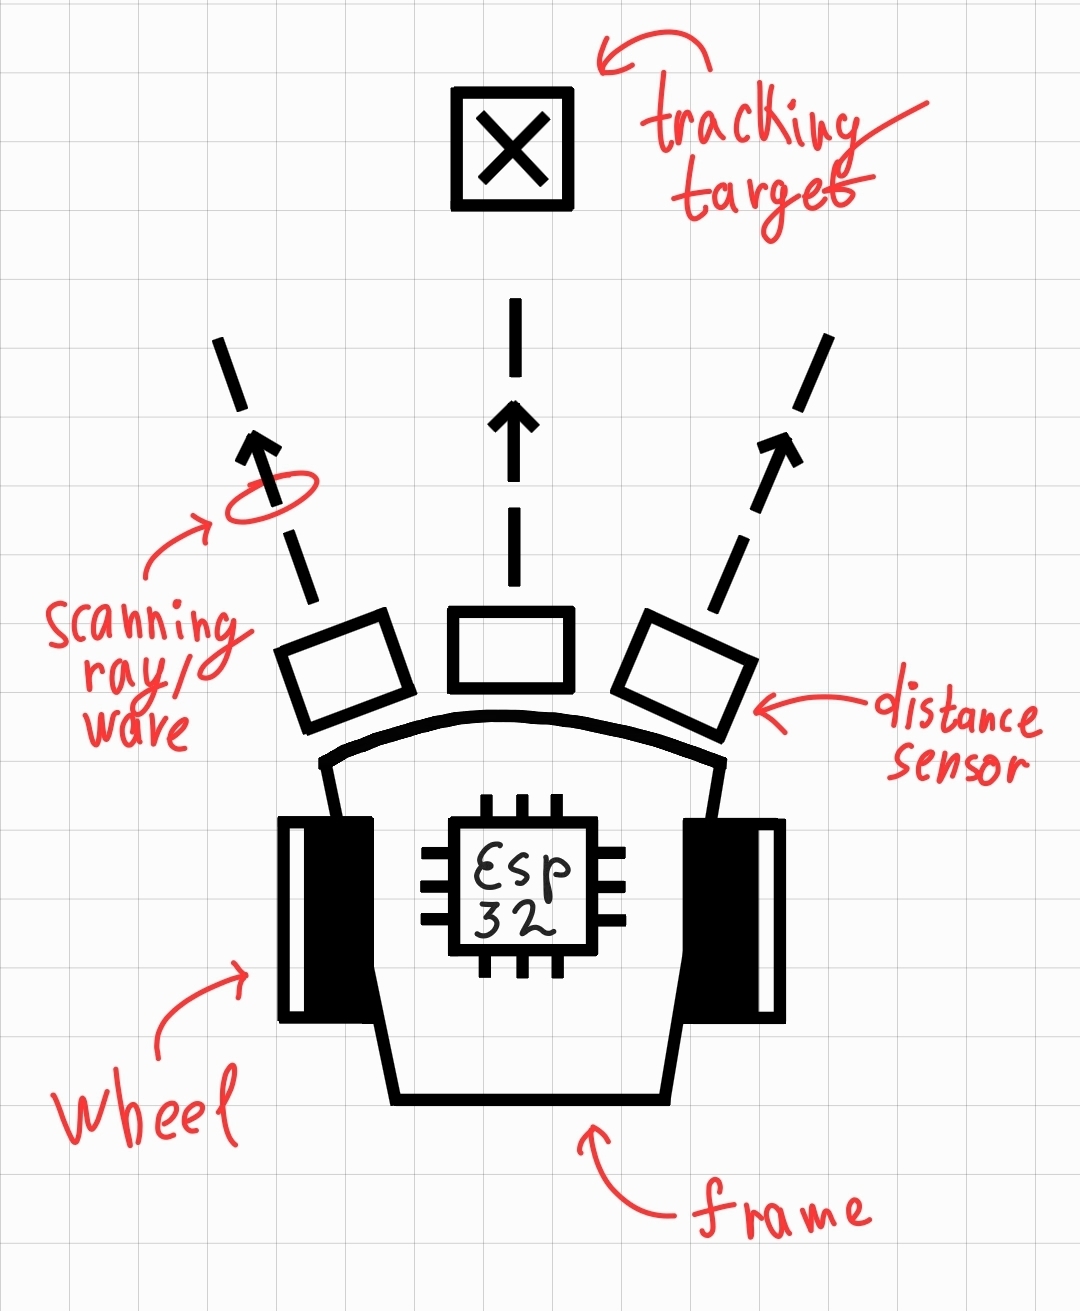 tracking
target
scanning
ray/
wave
distance
sensor
Esp
32
wheel
frame